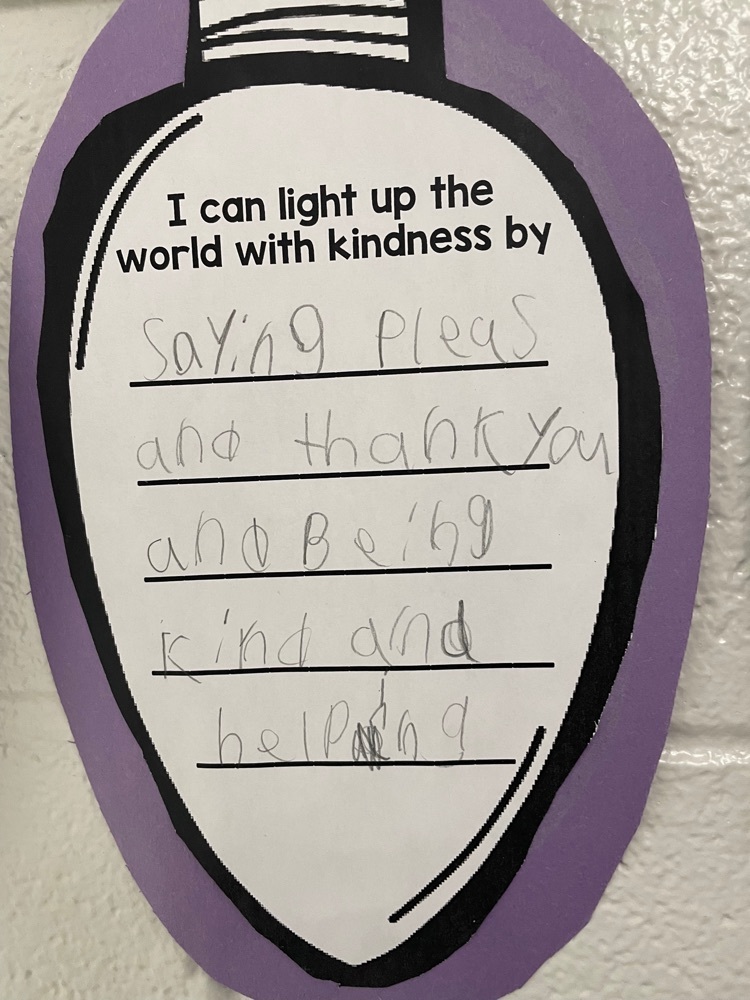 I can light up the
world with kindness by
Saying Pleas
and thank you
and Being
kind and
helping